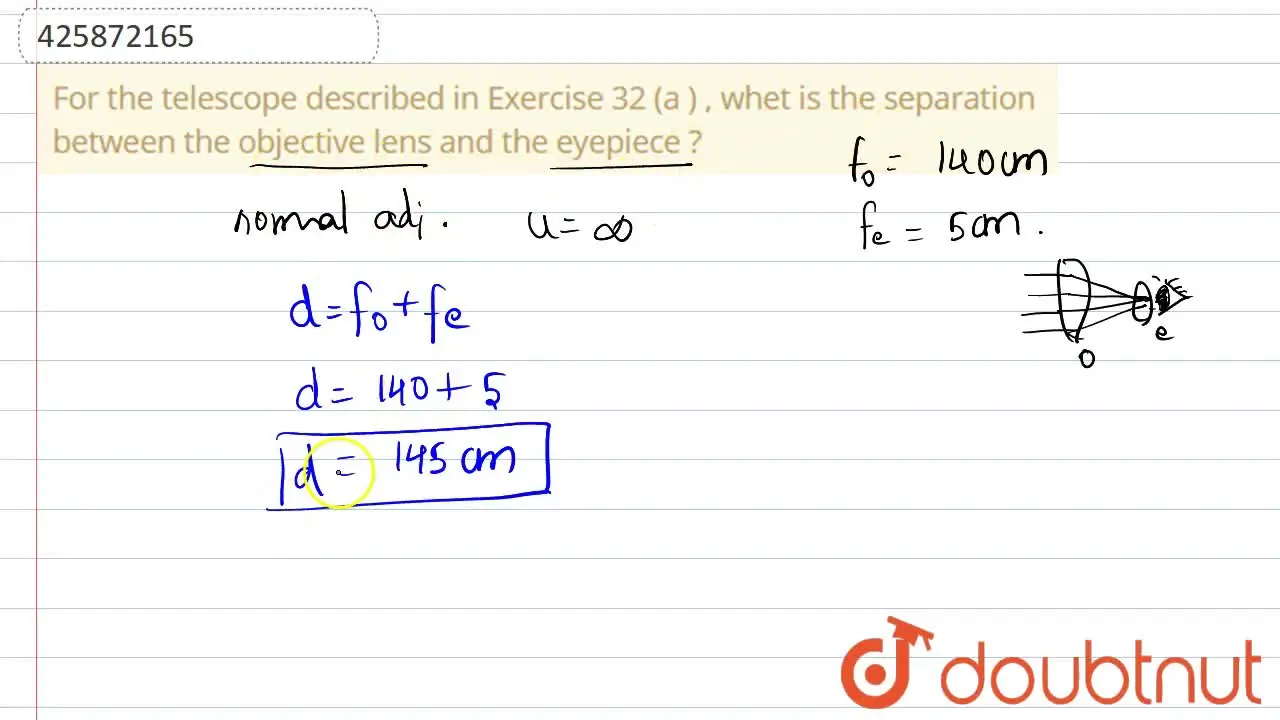 425872165
For the telescope described in Exercise 32 (a ) , whet is the separation
between the objective lens and the eyepiece ?
f₀ = 140cm
normal adj. u= ∞
fe = 5cm.
d=f₀+fe
O
e
d= 140+5
d= 145 cm
doubtnut